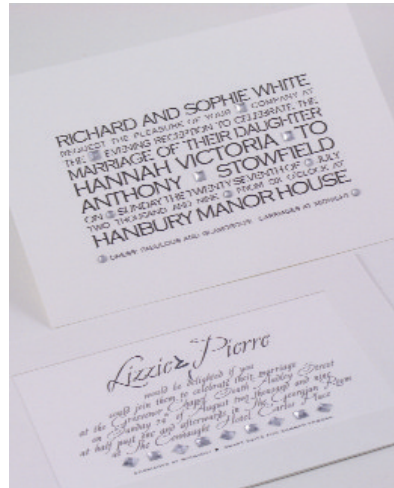 RICHARD AND SOPHIE WHITE
REQUEST THE PLEASURE OF YOUR COMPANY AT
THE EVENING RECEPTION TO CELEBRATE THE
MARRIAGE OF THEIR DAUGHTER
HANNAH VICTORIA TO
ANTHONY STOWFIELD
ON SUNDAY THE TWENTY SEVENTH OF JULY
TWO THOUSAND AND NINE FROM SIX O'CLOCK AT
HANBURY MANOR HOUSE
DRESS: FABULOUS AND GLAMOROUS CARRIAGES AT MIDNIGHT
Lizzie & Pierre
would be delighted if you
could join them to celebrate their marriage
at the Grosvenor Chapel South Audley Street
on Sunday 24 of August two thousand and nine
at half past five and afterwards in The Georgian Room
at The Connaught Hotel Carlos Place
CARRIAGES AT MIDNIGHT